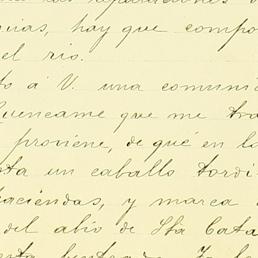 las reparaciones
uias, hay que compo
el rio.
to á V. una comuni
Cuencame que me tra
proviene, de que en la
ta un caballo tordi
haciendas, y marca
del abio de Sta Cata